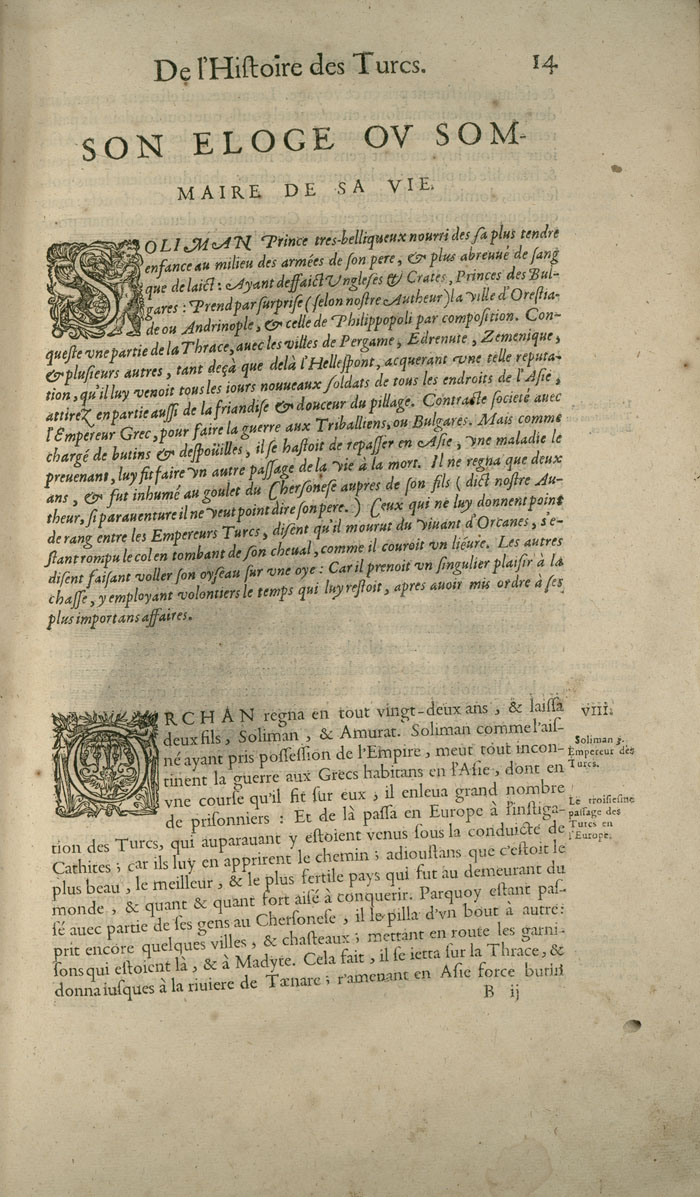 De l'Hiſtoire des Turcs. 14
SON ELOGE OV SOM-
MAIRE DE SA VIE.
SOLIMAN Prince tres-belliqueux nourri des ſa plus tendre
enfance au milieu des armées de ſon pere, & plus abreuué de ſang
que de laict: Ayant deffaict Vngleſes & Crates, Princes des Bul-
gares: Prend par ſurpriſe (ſelon noſtre Autheur) la ville d'Oreſtia-
de ou Andrinople, & celle de Philippopoli par compoſition. Con-
queſte vne partie de la Thrace, auec les villes de Pergame, Edrenute, Zemenique,
& pluſieurs autres, tant deçà que delà l'Helleſpont, acquerant vne telle reputa-
tion, qu'il luy venoit tous les iours nouueaux ſoldats de tous les endroits de l'Aſie,
attirez en partie auſſi de la friandiſe & douceur du pillage. Contracte ſocieté auec
l'Empereur Grec, pour faire la guerre aux Triballiens, ou Bulgares. Mais comme
chargé de butins & deſpoüilles, il ſe haſtoit de repaſſer en Aſie, vne maladie le
preuenant, luy fit faire vn autre paſſage de la vie à la mort. Il ne regna que deux
ans, & fut inhumé au goulet du Cherſoneſe aupres de ſon fils (dict noſtre Au-
theur, ſi parauenture il ne veut point dire ſon pere.) Ceux qui ne luy donnent point
de rang entre les Empereurs Turcs, diſent qu'il mourut du viuant d'Orcanes, s'e-
ſtant rompu le col en tombant de ſon cheual, comme il couroit vn liéure. Les autres
diſent faiſant voller ſon oyſeau ſur vne oye: Car il prenoit vn ſingulier plaiſir à la
chaſſe, y employant volontiers le temps qui luy reſtoit, apres auoir mis ordre à ſes
plus importans affaires.
ORCHAN regna en tout vingt-deux ans, & laiſſa
deux fils, Soliman, & Amurat. Soliman comme l'aiſ-
né ayant pris poſſeſſion de l'Empire, meut tout incon-
tinent la guerre aux Grecs habitans en l'Aſie, dont en
vne courſe qu'il fit ſur eux, il enleua grand nombre
de priſonniers: Et de là paſſa en Europe à l'inſtiga-
tion des Turcs, qui auparauant y eſtoient venus ſous la conduicte de
Cathites; car ils luy en apprirent le chemin; adiouſtans que c'eſtoit le
plus beau, le meilleur, & le plus fertile pays qui fut au demeurant du
monde, & quant & quant fort aiſé à conquerir. Parquoy eſtant paſ-
ſé auec partie de ſes gens au Cherſoneſe, il le pilla d'vn bout à autre:
prit encore quelques villes, & chaſteaux; mettant en route les garni-
ſons qui eſtoient là, & à Madyte. Cela fait, il ſe ietta ſur la Thrace, &
donna iuſques à la riuiere de Tænare; r'amenant en Aſie force butin
B ij
VIII.
Soliman j.
Empereur des
Turcs.
Le troiſieſme
paſſage des
Turcs en
l'Europe.